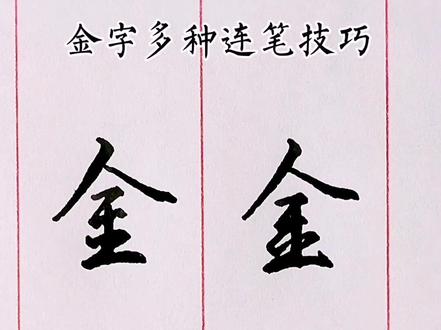 金字多种连笔技巧
金 金